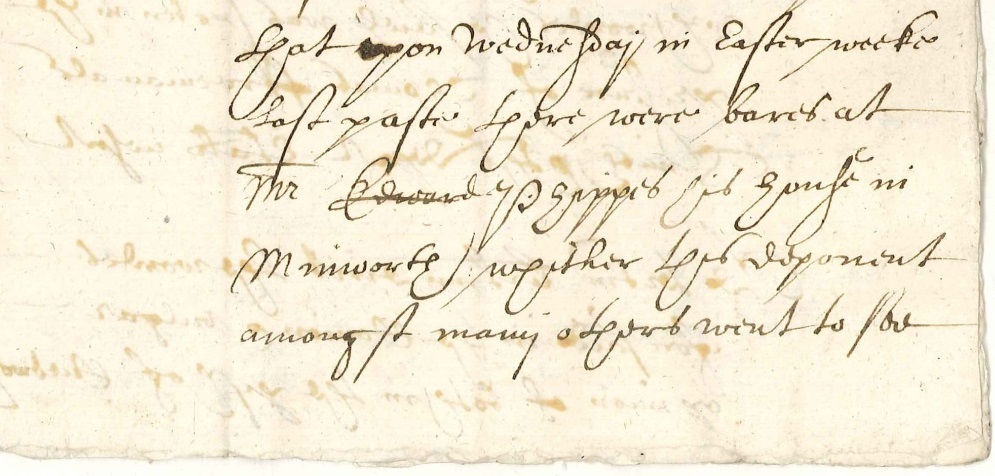 that upon Wednesday in Easter weeke
last paste there were bares at
Mr Edward Shippes his house in
Minworth whither this deponent
amongst many others went to see